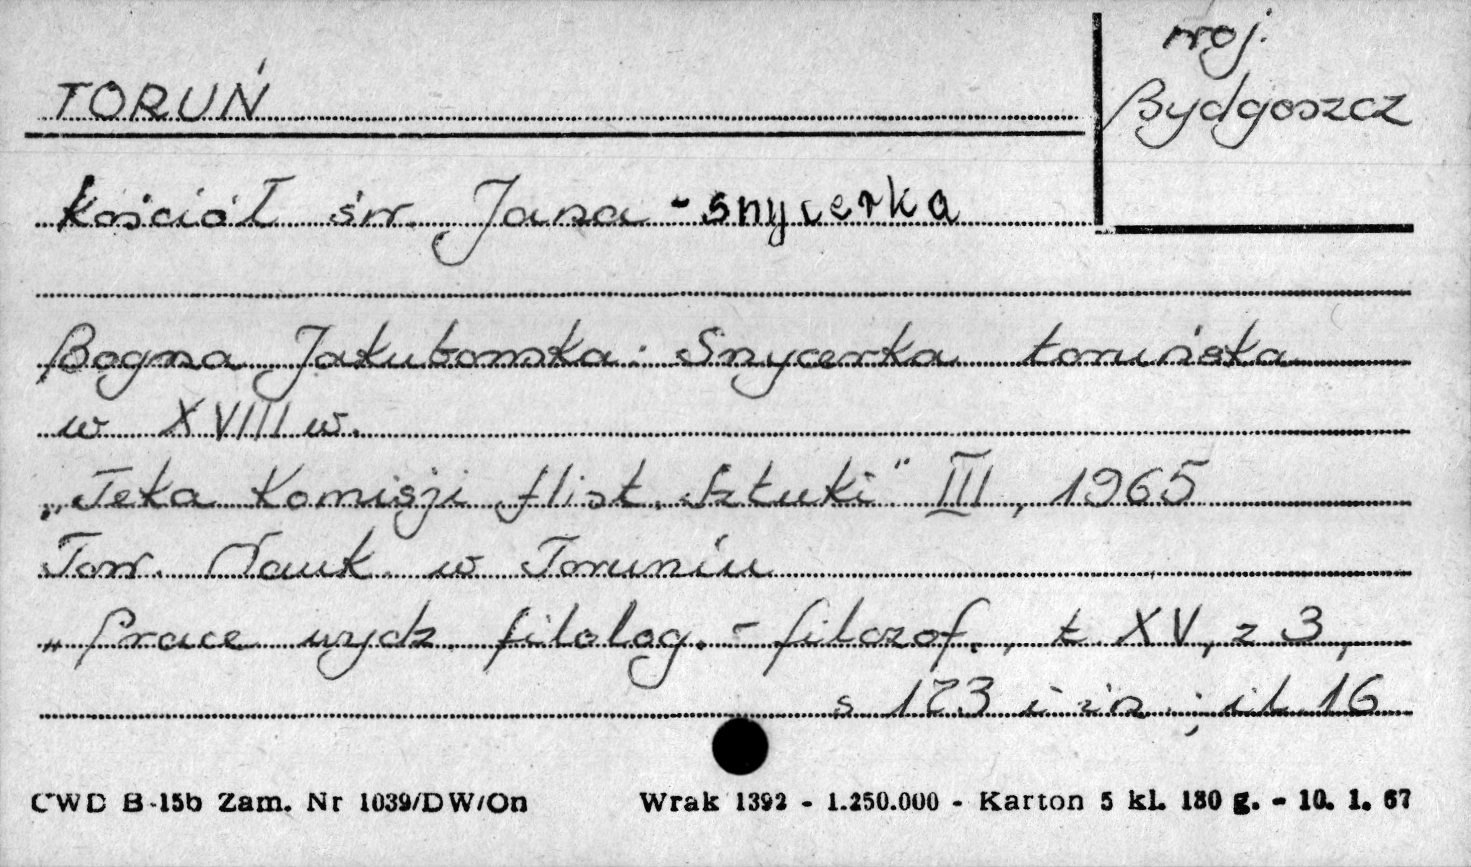 woj.
Bydgoszcz
TORUŃ
Kościół św. Jana - snycerka
Bogna Jakubowska: Snycerka toruńska
w XVIII w.
„Teka Komisji Hist. Sztuki" III, 1965
Tow. Nauk. w Toruniu
„Prace wydz. filolog. - filozof., t XV, z 3,
s 173 i in.; il. 16
CWD B-15b Zam. Nr 1039/DW/On Wrak 1392 - 1.250.000 - Karton 5 kl. 180 g. - 10. 1. 67